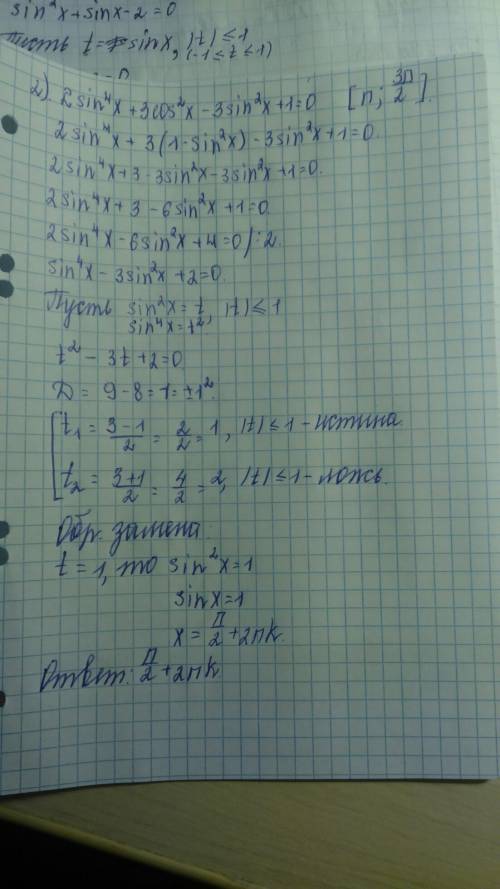 sin²x+sinx-2=0
Пусть t=sinx, |t|≤1
(-1≤t≤1)
2) 2sin⁴x+3cos²x-3sin²x+1=0 [π; 3π/2].
2sin⁴x+3(1-sin²x)-3sin²x+1=0.
2sin⁴x+3-3sin²x-3sin²x+1=0.
2sin⁴x+3-6sin²x+1=0.
2sin⁴x-6sin²x+4=0/:2.
sin⁴x-3sin²x+2=0.
Пусть sin²x=t, |t|≤1
sin⁴x=t²
t²-3t+2=0.
D=9-8=1=±1².
t₁=(3-1)/2=2/2=1, |t|≤1-истина.
t₂=(3+1)/2=4/2=2, |t|≤1-ложь.
Обр. замена:
t=1, то sin²x=1
sinx=1
x=π/2+2πk.
Ответ: π/2+2πk